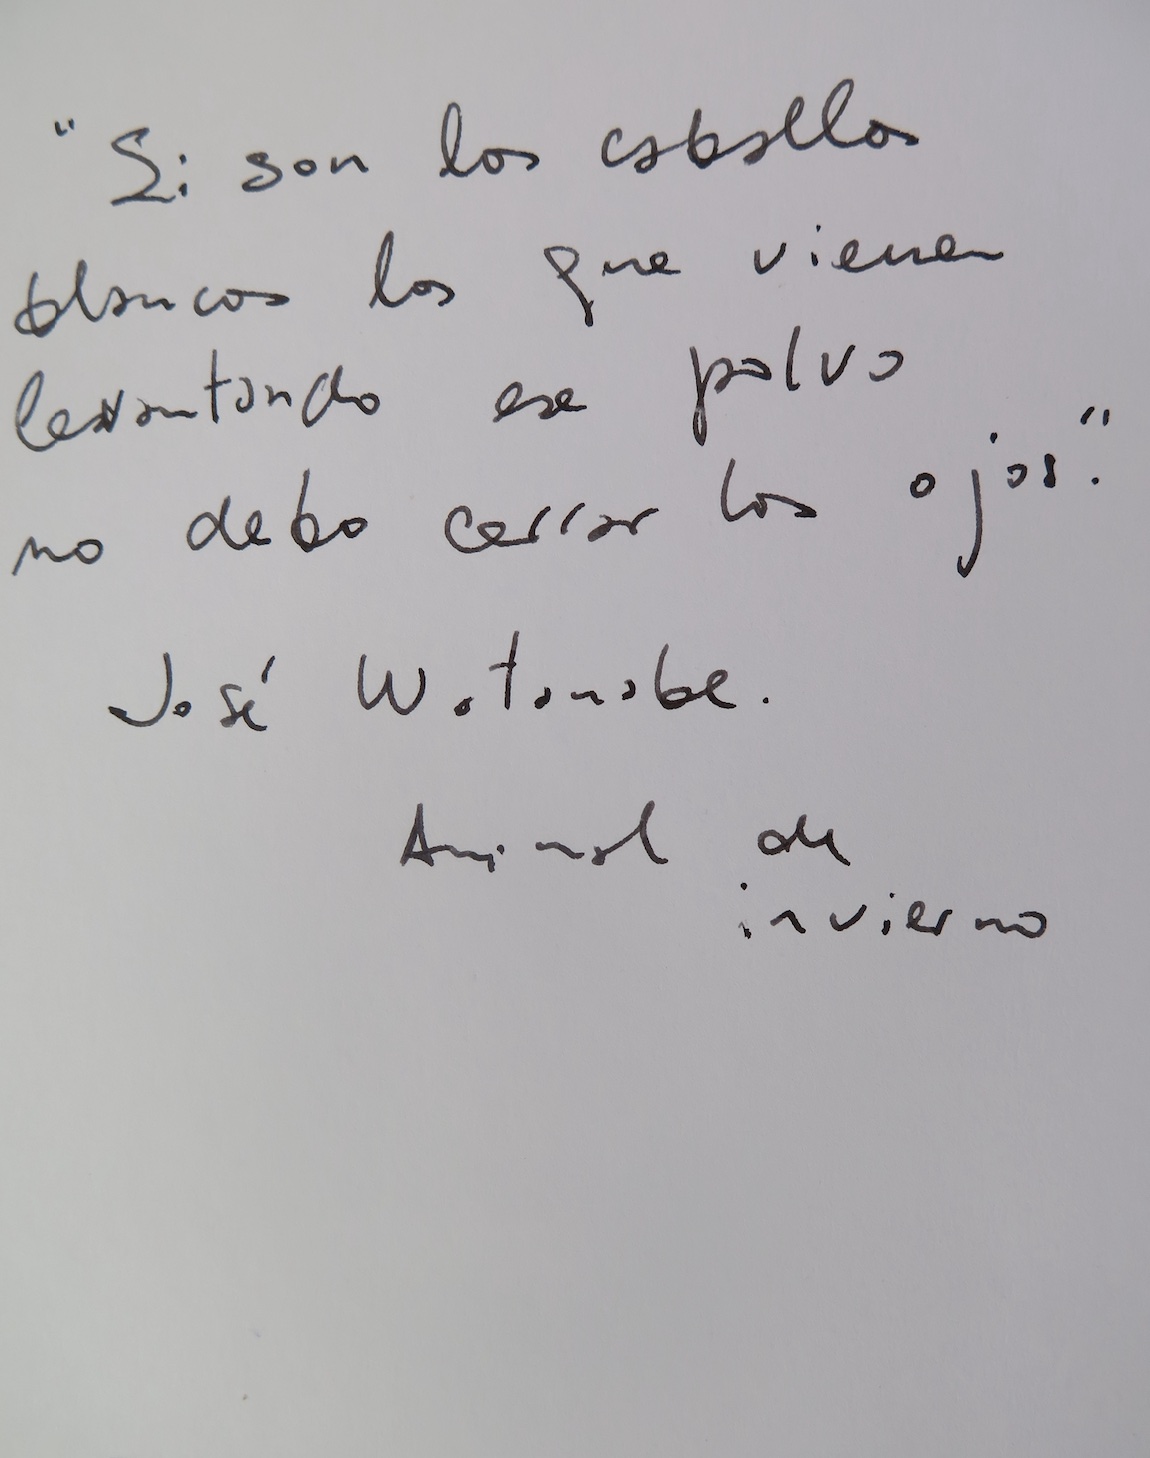 "Si son los caballos
blancos los que vienen
levantando ese polvo
no debo cerrar los ojos."
José Watanabe.
Animal de
invierno